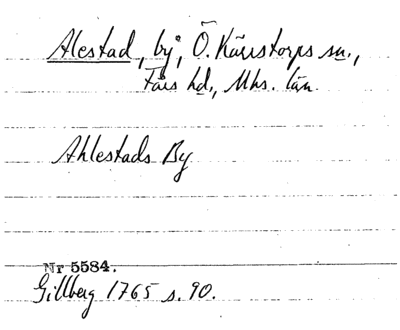 Alestad, by, Ö. Kärrstorps sn.,
Färs hd., Mhs. län.
Ahlestads By
Nr 5584.
Gillberg 1765 s. 90.